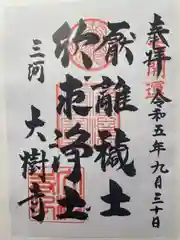 奉拝 令和五年九月三十日
厭離穢土
欣求浄土
三河 大樹寺